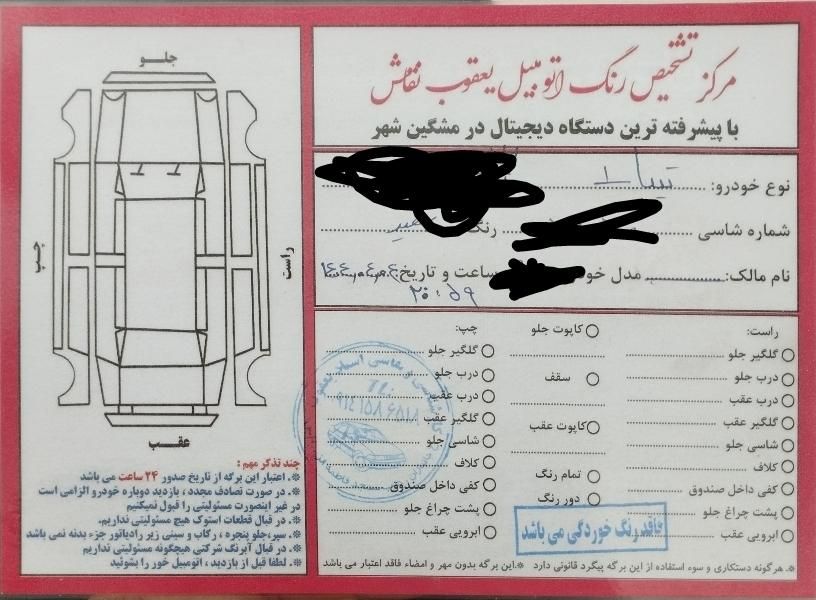 مرکز تشخیص رنگ اتومبیل یعقوب نقاش
با پیشرفته ترین دستگاه دیجیتال در مشگین شهر
نوع خودرو: تیبا ۱
شماره شاسی رنگ
نام مالک: مدل ساعت و تاریخ:
۲۰:۵۹
راست:
گلگیر جلو
درب جلو
درب عقب
گلگیر عقب
شاسی جلو
کلاف
کفی داخل صندوق
پشت چراغ جلو
ابرویی عقب
کاپوت جلو
سقف
کاپوت عقب
تمام رنگ
دور رنگ
چپ:
گلگیر جلو
درب جلو
درب عقب
گلگیر عقب
شاسی جلو
کلاف
کفی داخل صندوق
پشت چراغ جلو
ابرویی عقب
فاقد رنگ خوردگی می باشد
*. هرگونه دستکاری و سوء استفاده از این برگه پیگرد قانونی دارد *. این برگه بدون مهر و امضاء فاقد اعتبار می باشد
جلو
چپ
راست
عقب
چند تذکر مهم:
*. اعتبار این برگه از تاریخ صدور ۲۴ ساعت می باشد
*. در صورت تصادف مجدد، بازدید دوباره خودرو الزامی است
در غیر اینصورت مسئولیتی را قبول نمیکنیم
*. در قبال قطعات استوک هیچ مسئولیتی نداریم.
*. سپر، جلو پنجره، رکاب و سینی زیر رادیاتور جزء بدنه نمی باشد
*. در قبال آبرنگ شرکتی هیچگونه مسئولیتی نداریم
*. لطفا قبل از بازدید، اتومبیل خود را بشوئید